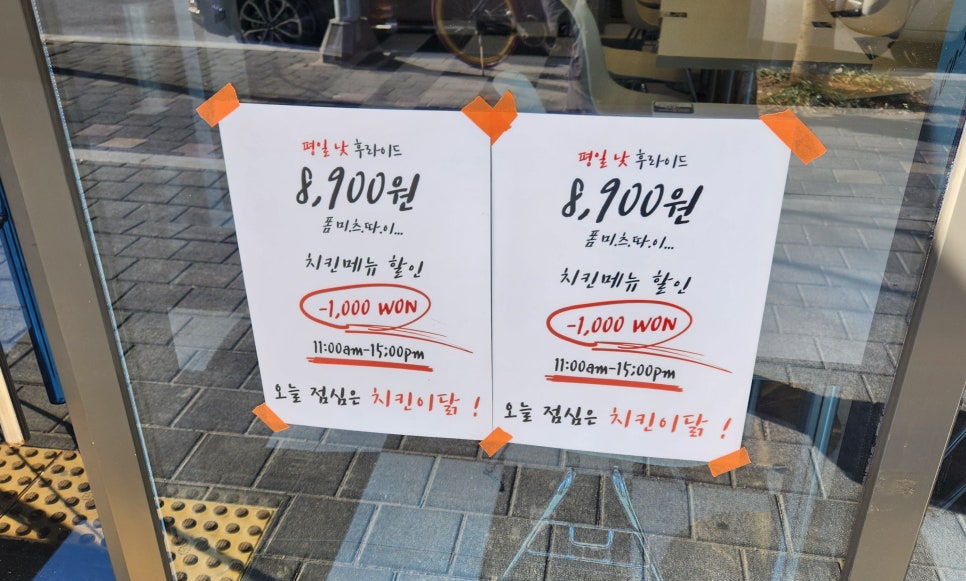 평일 낮 후라이드
8,900원
폼 미.츠.따.이...
치킨메뉴 할인
-1,000 WON
11:00am-15:00pm
오늘 점심은 치킨이닭 !
평일 낮 후라이드
8,900원
폼 미.츠.따.이...
치킨메뉴 할인
-1,000 WON
11:00am-15:00pm
오늘 점심은 치킨이닭 !